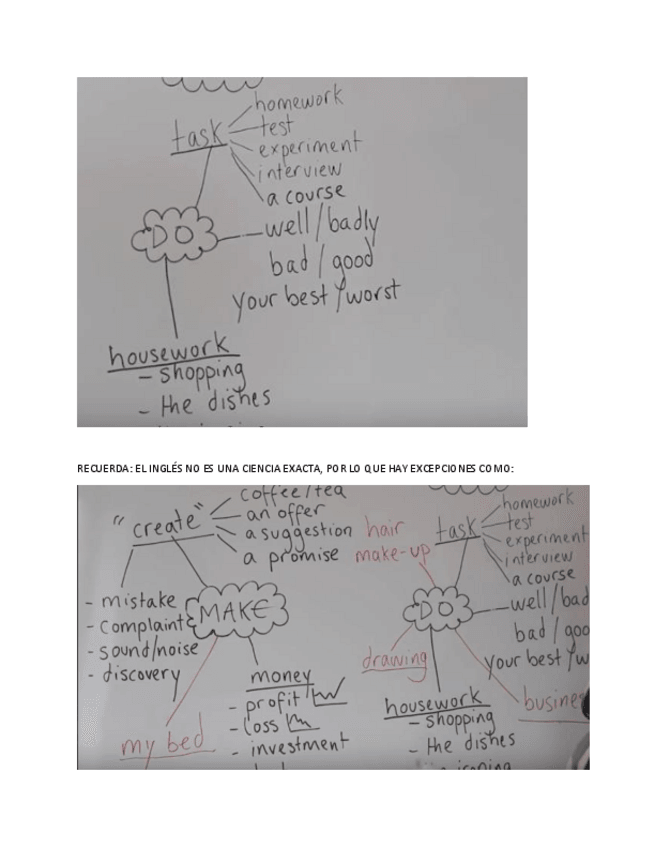 homework
task
test
experiment
interview
a course
DO
well/badly
bad/good
your best/worst
housework
- shopping
- the dishes
RECUERDA: EL INGLÉS NO ES UNA CIENCIA EXACTA, POR LO QUE HAY EXCEPCIONES COMO:
coffee/tea
"create"
an offer
a suggestion
a promise
MAKE
- mistake
- complaint
- sound/noise
- discovery
money
- profit
- loss
- investment
my bed
hair
make-up
homework
task
test
experiment
interview
a course
DO
well/bad
bad/goo
your best/w
drawing
busine
housework
- shopping
- the dishes